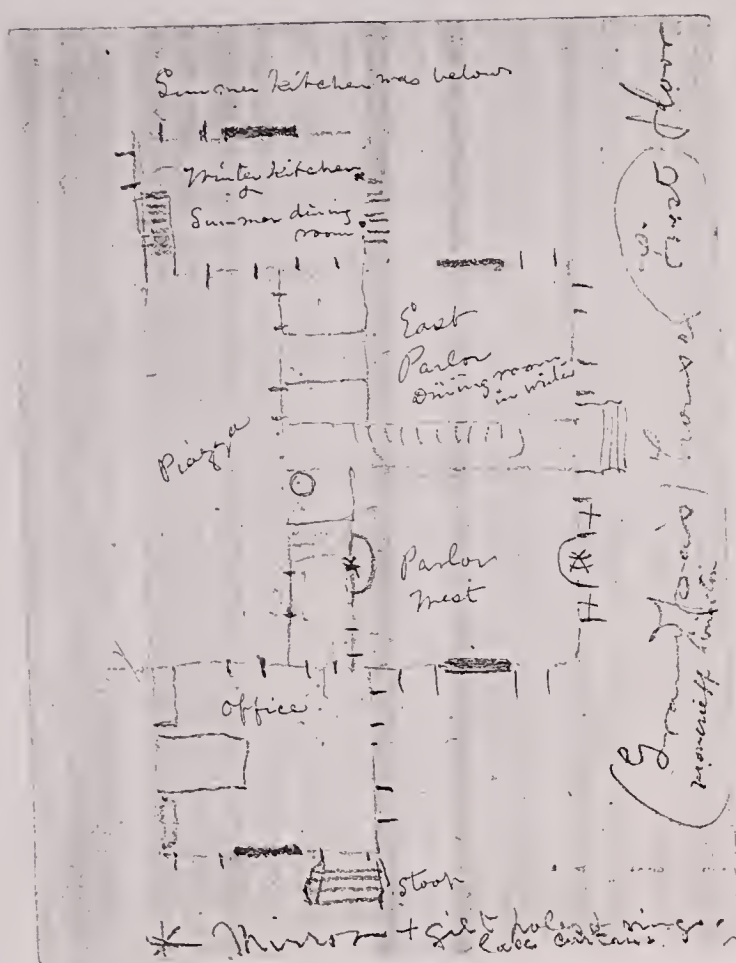 Summer Kitchen was below
Winter Kitchen
&
Summer dining
room
East
Parlor
Dining room
in winter
Piazza
Parlor
West
Office
Stoop
Mirror + gilt poles & rings
lace curtains
First floor
Grandpa's house
Moncrieff